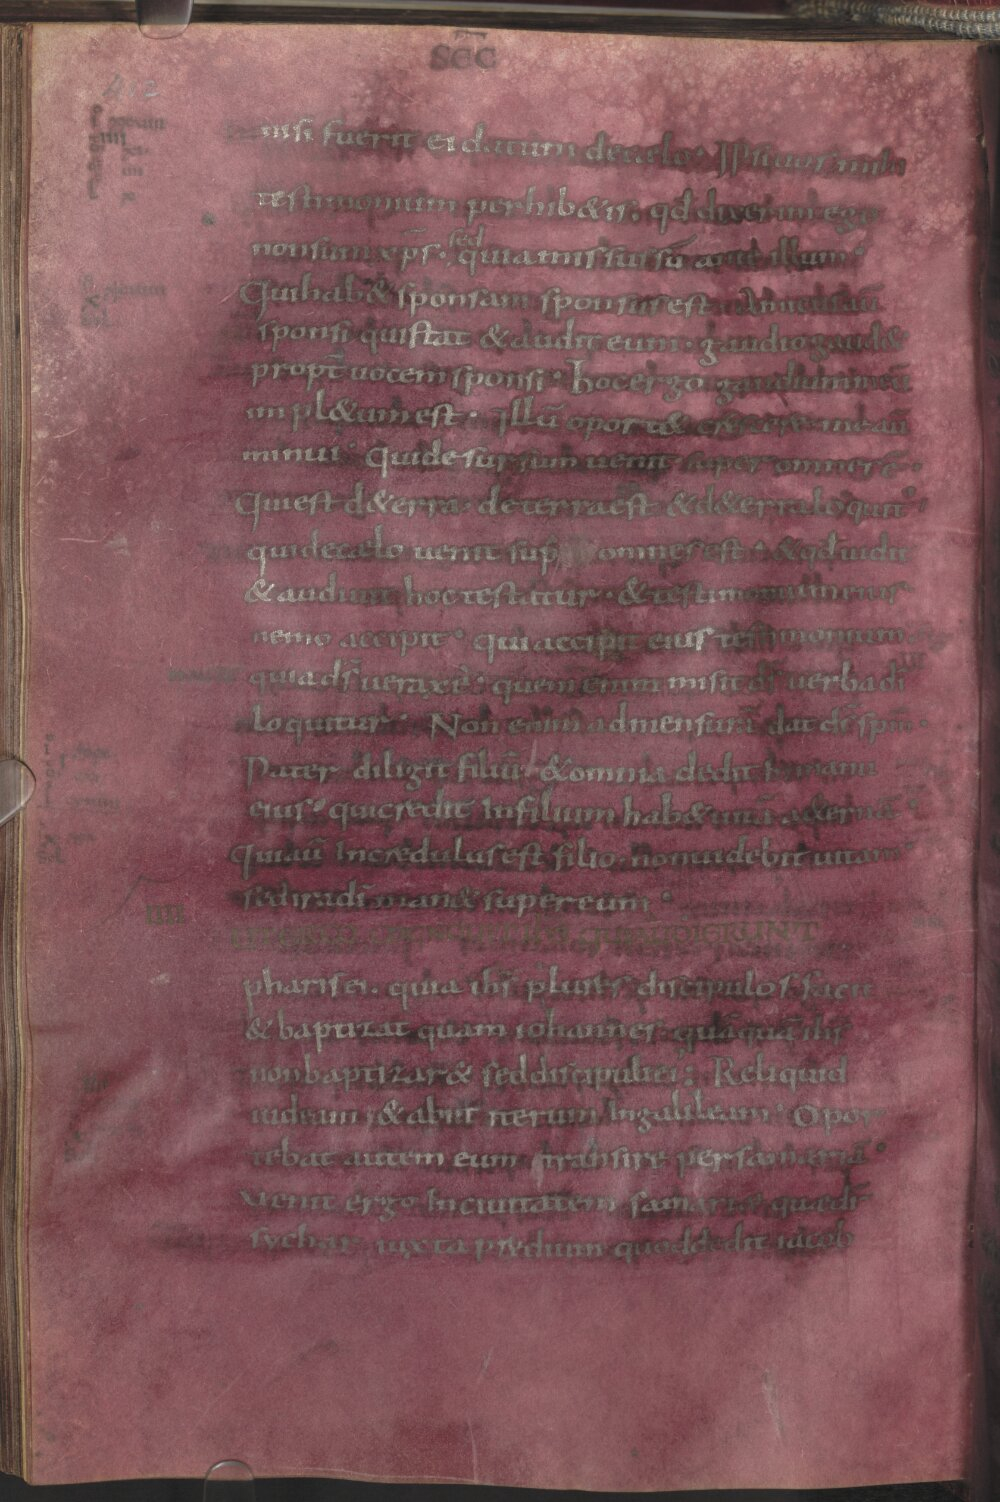 SEC
412
nisi fuerit ei datum decaelo· Ipsi uos mihi
testimonium perhib&is· qd dixerim ego
nonsum xp̄s· sed quia missus sū ante illum·
Quihab& sponsam sponsus est Amicus aū
sponsi quistat & audit eum· gaudio gaud&
propt̄ uocem sponsi· hoc ergo gaudium meū
impl&um est· Illū oport& crescere me aū
minui· Quide sursum uenit super omnes ē·
Quiest d&erra· de terra est &d&erra loquit̄·
quidecaelo uenit sup omnes est· &qd uidit
& audiuit hoc testatur· & testimonium eius
nemo accipit· qui accipit eius testimonium
quia ds̄ uerax ē· quem enim misit ds̄ uerba dī
loquitur· Non enim admensurā dat ds̄ spm̄·
Pater diligit filiū &omnia dedit Inmanu
eius· qui credit Infilium hab& uitā a&ernā·
Quiaū Incredulus est filio· nonuidebit uitam
sedira dī man& super eum·
IIII
UT ERGO COGNOUIT IHS QUIA AUDIERUNT
pharisei· quia ihs̄ plures discipulos facit
& baptizat quam iohannes· quāquā ihs̄
nonbaptizar& sed discipuli ei; Reliquid
iudeam &abiit iterum Ingalileam· Opor
tebat autem eum transire persamariā·
Uenit ergo Inciuitatem samariae quaedr̄
sychar iuxta praedium quod dedit iacob